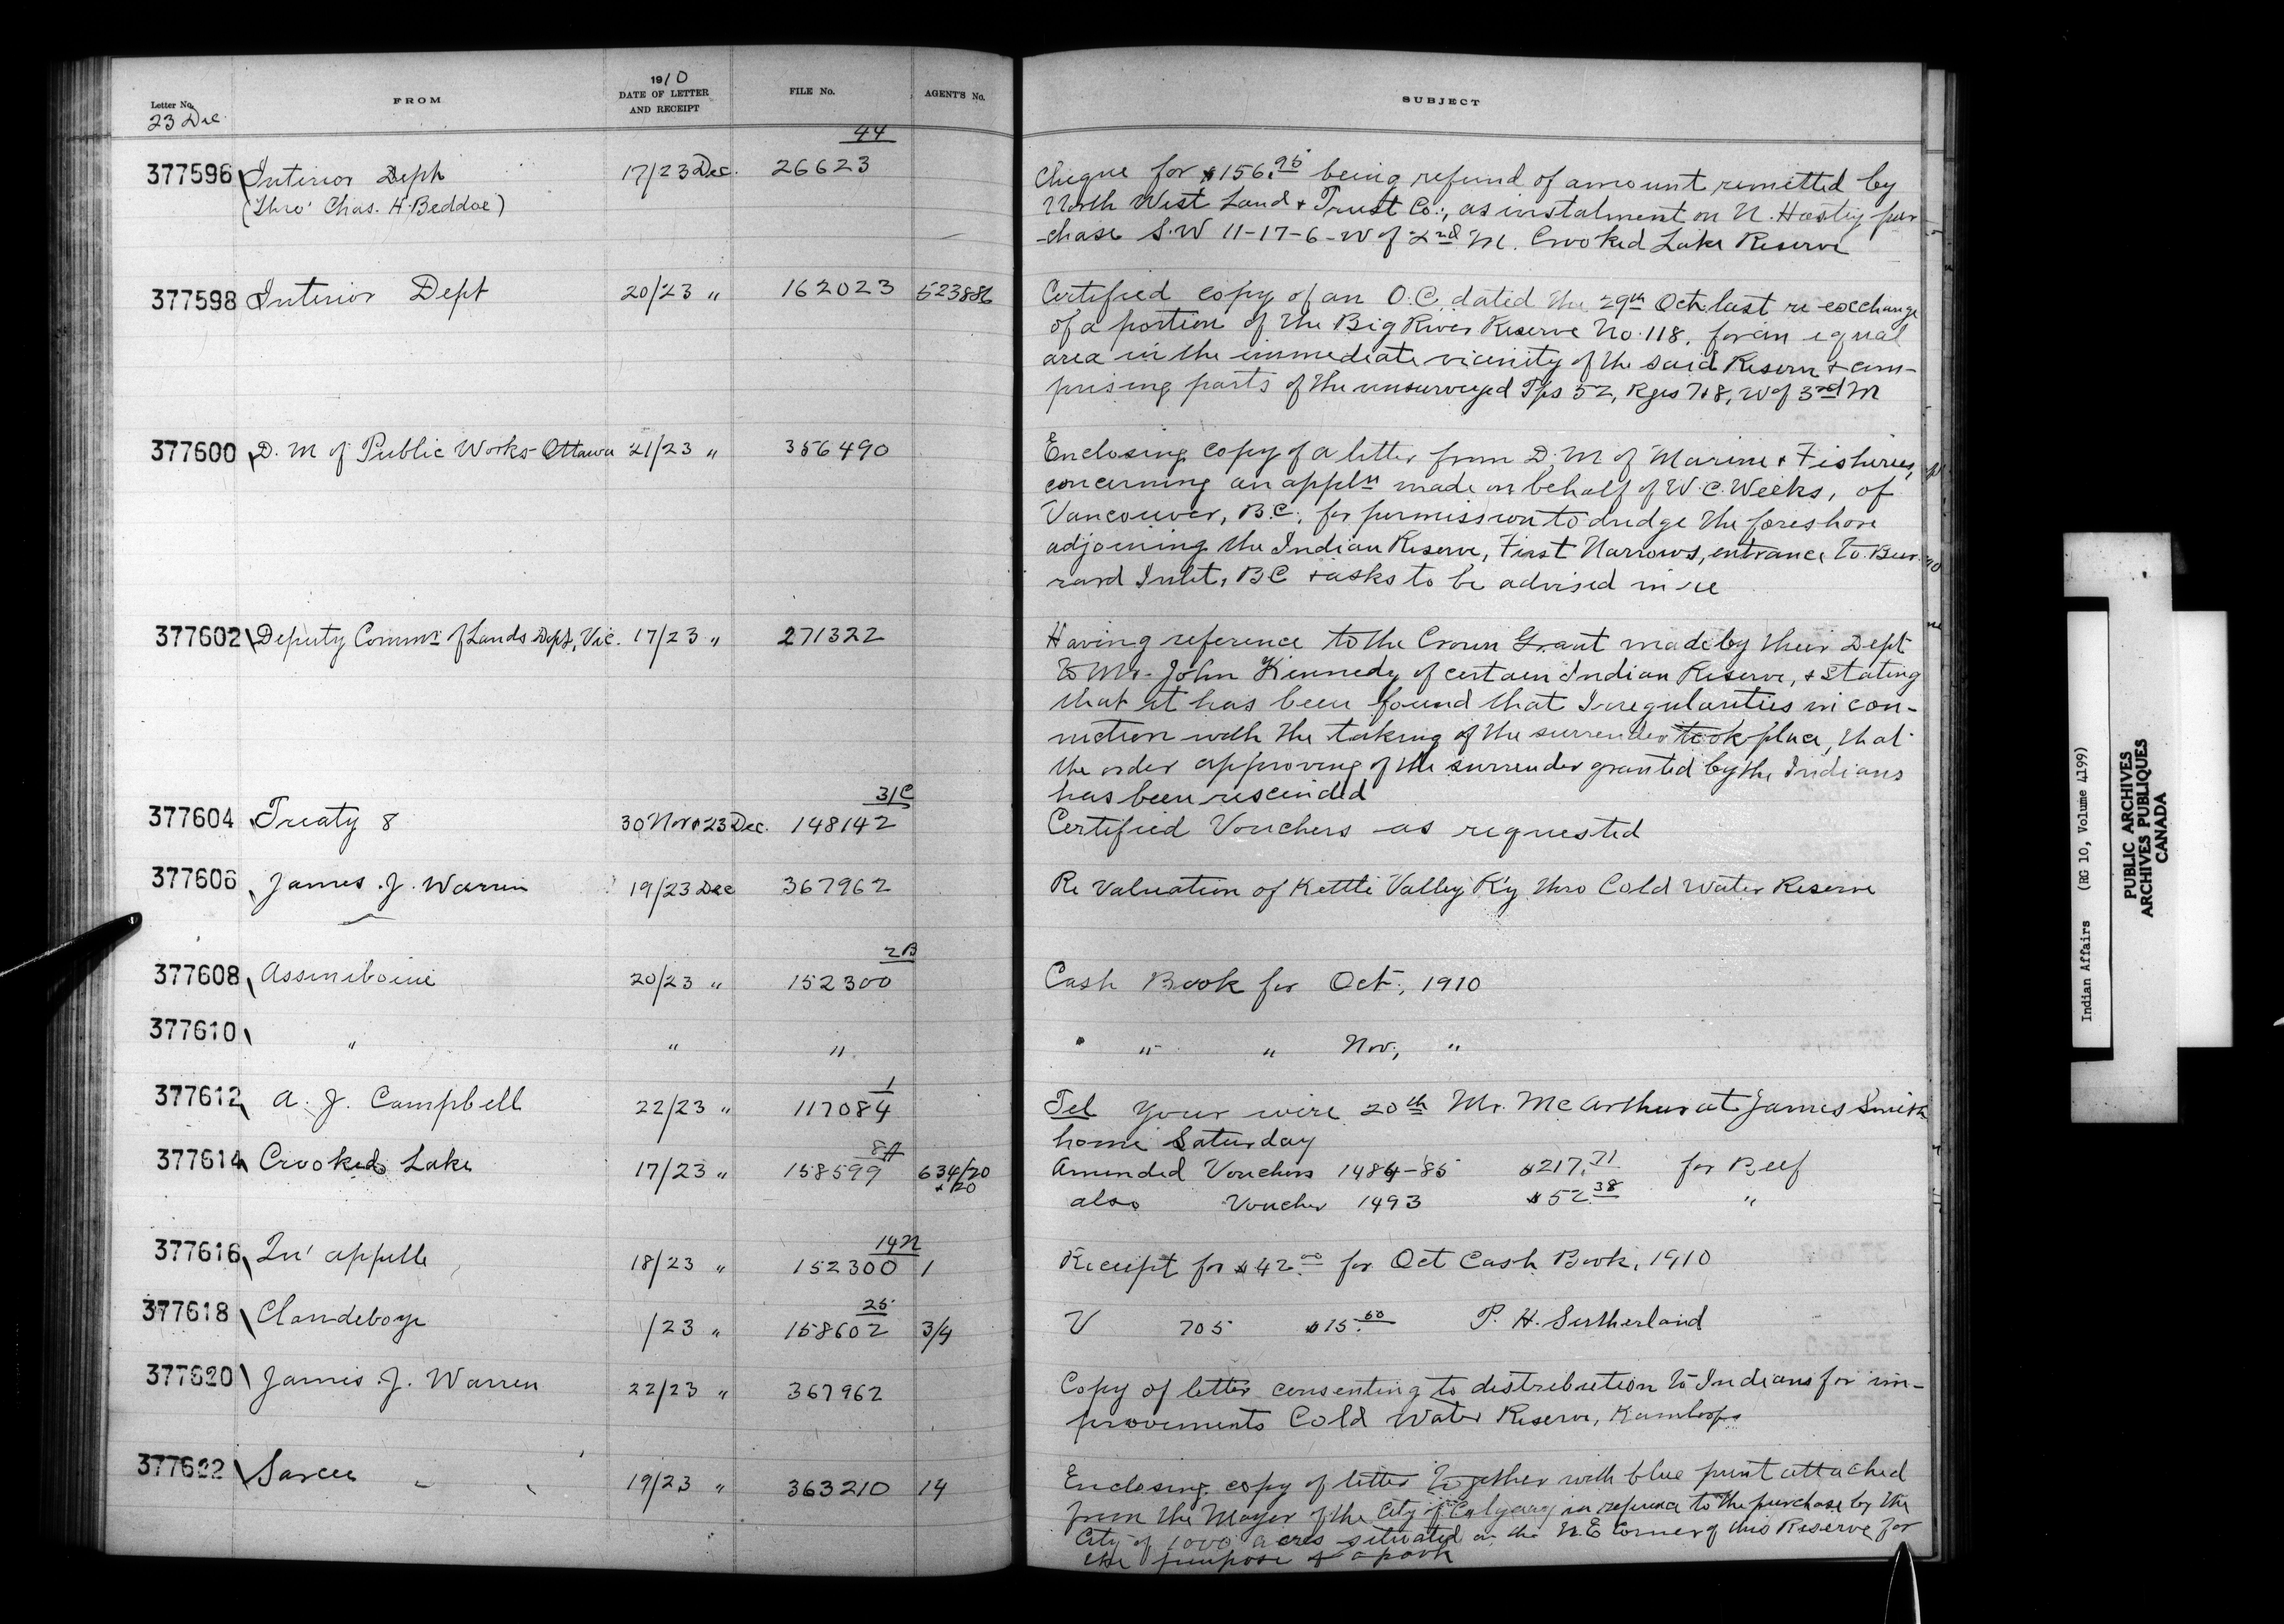 Letter No. FROM 1910 DATE OF LETTER AND RECEIPT FILE No. AGENT'S No. SUBJECT
23 Dec.
377596 Interior Dept 17/23 Dec. 44 26623 Cheque for $156.95 being refund of amount remitted by
(Thro' Chas. H. Beddoe) North West Land & Trust Co., as instalment on N. Hastig pur-
-chase S.W 11-17-6-W of 2nd M. Crooked Lake Reserve
377598 Interior Dept 20/23 " 162023 523886 Certified copy of an O.C. dated the 29th Oct. last re exchange
of a portion of the Big River Reserve No. 118, for an equal
area in the immediate vicinity of the said Reserve & com-
prising parts of the unsurveyed Tps 52, Rges 7 & 8, W of 3rd M
377600 D. M of Public Works Ottawa 21/23 " 356490 Enclosing copy of a letter from D. M of Marine & Fisheries,
concerning an appln made on behalf of W. C. Weeks, of
Vancouver, B.C., for permission to dredge the foreshore
adjoining the Indian Reserve, First Narrows, entrance to Bur-
rard Inlet, BC & asks to be advised in re
377602 Deputy Commr of Lands Dept, Vic. 17/23 " 271322 Having reference to the Crown Grant made by their Dept
to Mr. John Kennedy of certain Indian Reserve, & stating
that it has been found that Irregularities in con-
nection with the taking of the surrender took place, that
the order approving of the surrender granted by the Indians
has been rescinded
377604 Treaty 8 30 Nov & 23 Dec. 31C 148142 Certified Vouchers as requested
377606 James J. Warren 19/23 Dec 367962 Re Valuation of Kettle Valley R'y thro Cold Water Reserve
377608 Assiniboine 20/23 " 2B 152300 Cash Book for Oct., 1910
377610 " " " " " " Nov, "
377612 A. J. Campbell 22/23 " 1 117084 Tel Your wire 20th Mr. McArthur at James Smith
home Saturday
377614 Crooked Lake 17/23 " 8A 158599 634/20 & 20 Amended Vouchers 1484-85 $217.71 for Beef
also Voucher 1493 $52.38 "
377616 Qu'appelle 18/23 " 14N 152300 1 Receipt for $42.00 for Oct Cash Book, 1910
377618 Clandeboye /23 " 25 158602 3/4 V 705 $15.50 P. H. Sutherland
377620 James J. Warren 22/23 " 367962 Copy of letter consenting to distribution to Indians for im-
provements Cold Water Reserve, Kamloops
377622 Sarcee 19/23 " 363210 14 Enclosing copy of letter together with blue print attached
from the Mayor of the City of Calgary in reference to the purchase by the
City of 1000 acres situated on the N.E Corner of this Reserve for
the purpose of a park
Indian Affairs (RG 10, Volume 4199)
PUBLIC ARCHIVES
ARCHIVES PUBLIQUES
CANADA